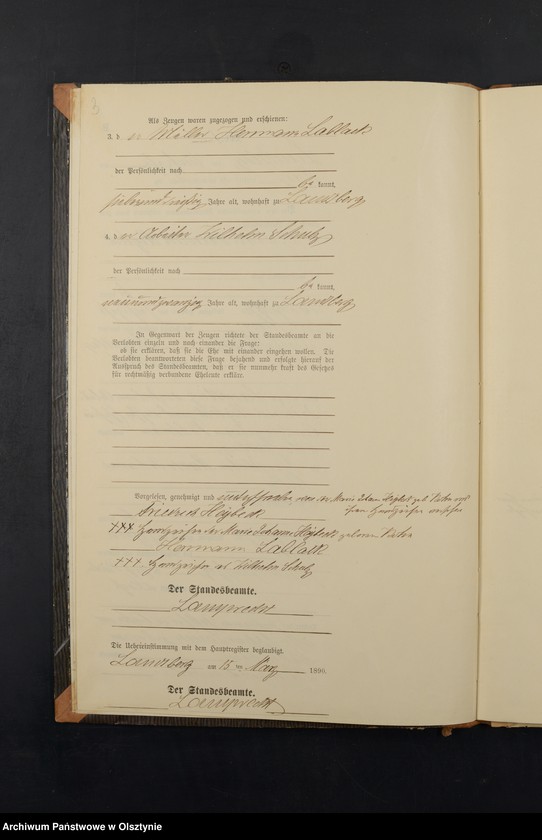 3
Als Zeugen waren zugezogen und erschienen:
3. d er Müller Hermann Lablack
der Persönlichkeit nach
be kannt,
siebenunddreißig Jahre alt, wohnhaft zu Landsberg
4. d er Arbeiter Wilhelm Schulz
der Persönlichkeit nach
be kannt,
neunundzwanzig Jahre alt, wohnhaft zu Landsberg
In Gegenwart der Zeugen richtete der Standesbeamte an die
Verlobten einzeln und nach einander die Frage:
ob sie erklären, daß sie die Ehe mit einander eingehen wollen. Die
Verlobten beantworteten diese Frage bejahend und erfolgte hierauf der
Ausspruch des Standesbeamten, daß er sie nunmehr kraft des Gesetzes
für rechtmäßig verbundene Eheleute erkläre.
Vorgelesen, genehmigt und von der Marie
Friedrich
+++ Handzeichen der Marie geborne
Hermann Lablack
+++ Handzeichen des Wilhelm Schulz
Der Standesbeamte.
Lamprecht
Die Uebereinstimmung mit dem Hauptregister beglaubigt.
Landsberg am 15 ten März 1890.
Der Standesbeamte.
Lamprecht
Archiwum Państwowe w Olsztynie